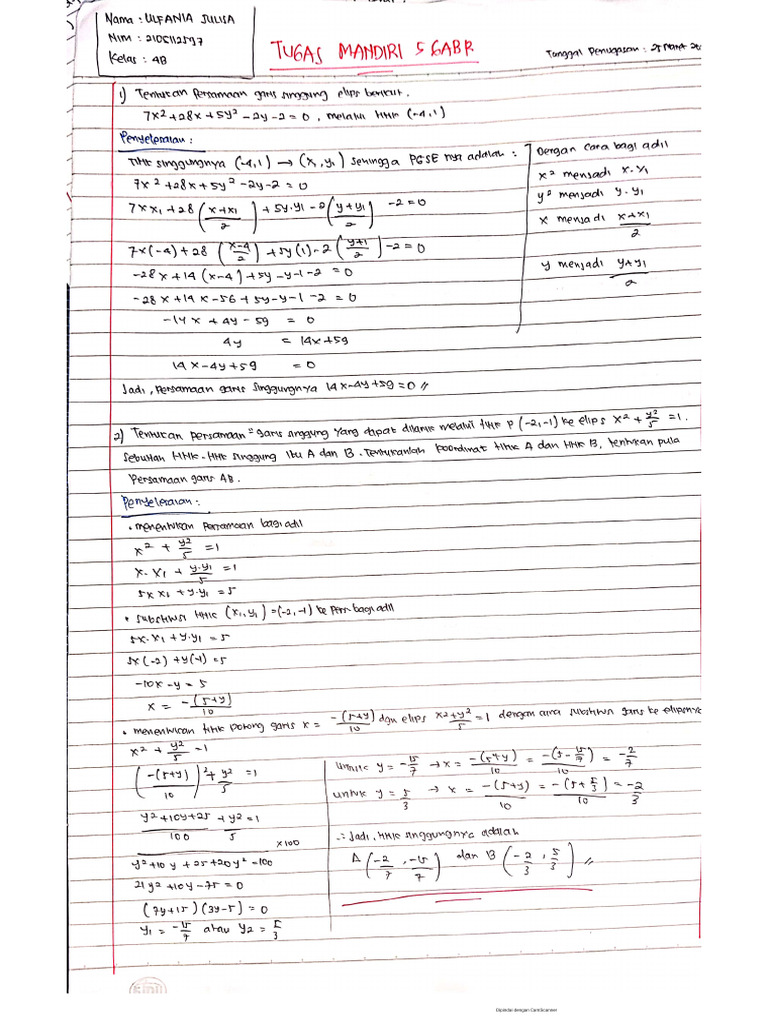 Nama : ULFANIA JULISA
Nim : 2106112597
Kelas : 4B
TUGAS MANDIRI 5 GABR
Tanggal Penugasan : 25 Maret 20
1) Tentukan Persamaan garis singgung elips berikut.
7x² + 28x + 5y² - 2y - 2 = 0, melalui titik (-4,1)
Penyelesaian :
Titik singgungnya (-4,1) → (x₁, y₁) sehingga PGSE nya adalah :
7x² + 28x + 5y² - 2y - 2 = 0
7xx₁ + 28 ((x+x₁)/2) + 5y.y₁ - 2 ((y+y₁)/2) - 2 = 0
7x(-4) + 28 ((x-4)/2) + 5y(1) - 2 ((y+1)/2) - 2 = 0
-28x + 14(x-4) + 5y - y - 1 - 2 = 0
-28x + 14x - 56 + 5y - y - 1 - 2 = 0
-14x + 4y - 59 = 0
4y = 14x + 59
14x - 4y + 59 = 0
Jadi, Persamaan garis singgungnya 14x - 4y + 59 = 0 //
Dengan cara bagi adil
x² menjadi x.x₁
y² menjadi y.y₁
x menjadi (x+x₁)/2
y menjadi (y+y₁)/2
2) Tentukan persamaan² garis singgung yang dapat dilukis melalui titik P (-2,-1) ke elips x² + y²/5 = 1.
Sebutlah titik-titik singgung itu A dan B. Tentukanlah koordinat titik A dan titik B, tentukan pula
Persamaan garis AB.
Penyelesaian :
• menentukan Persamaan bagi adil
x² + y²/5 = 1
x.x₁ + y.y₁/5 = 1
5x x₁ + y.y₁ = 5
• substitusi titik (x₁, y₁) = (-2, -1) ke pers. bagi adil
5x.x₁ + y.y₁ = 5
5x(-2) + y(-1) = 5
-10x - y = 5
x = -(5+y)/10
• menentukan titik potong garis x = -(5+y)/10 dan elips x²+y²/5 = 1 dengan cara substitusi garis ke elipsnya
x² + y²/5 = 1
(-(5+y)/10)² + y²/5 = 1
(y²+10y+25)/100 + y²/5 = 1
x100
y² + 10y + 25 + 20y² = 100
21y² + 10y - 75 = 0
(7y+15)(3y-5) = 0
y₁ = -15/7 atau y₂ = 5/3
untuk y = -15/7 → x = -(5+y)/10 = -(5-15/7)/10 = -2/7
untuk y = 5/3 → x = -(5+y)/10 = -(5+5/3)/10 = -2/3
∴ Jadi, titik singgungnya adalah
A (-2/7, -15/7) dan B (-2/3, 5/3) //
Dipindai dengan CamScanner